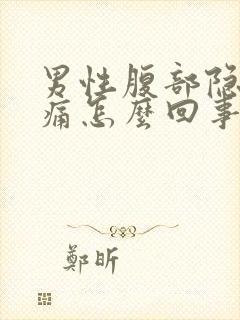 男性腹部隐
痛怎麽回事
鄭昕